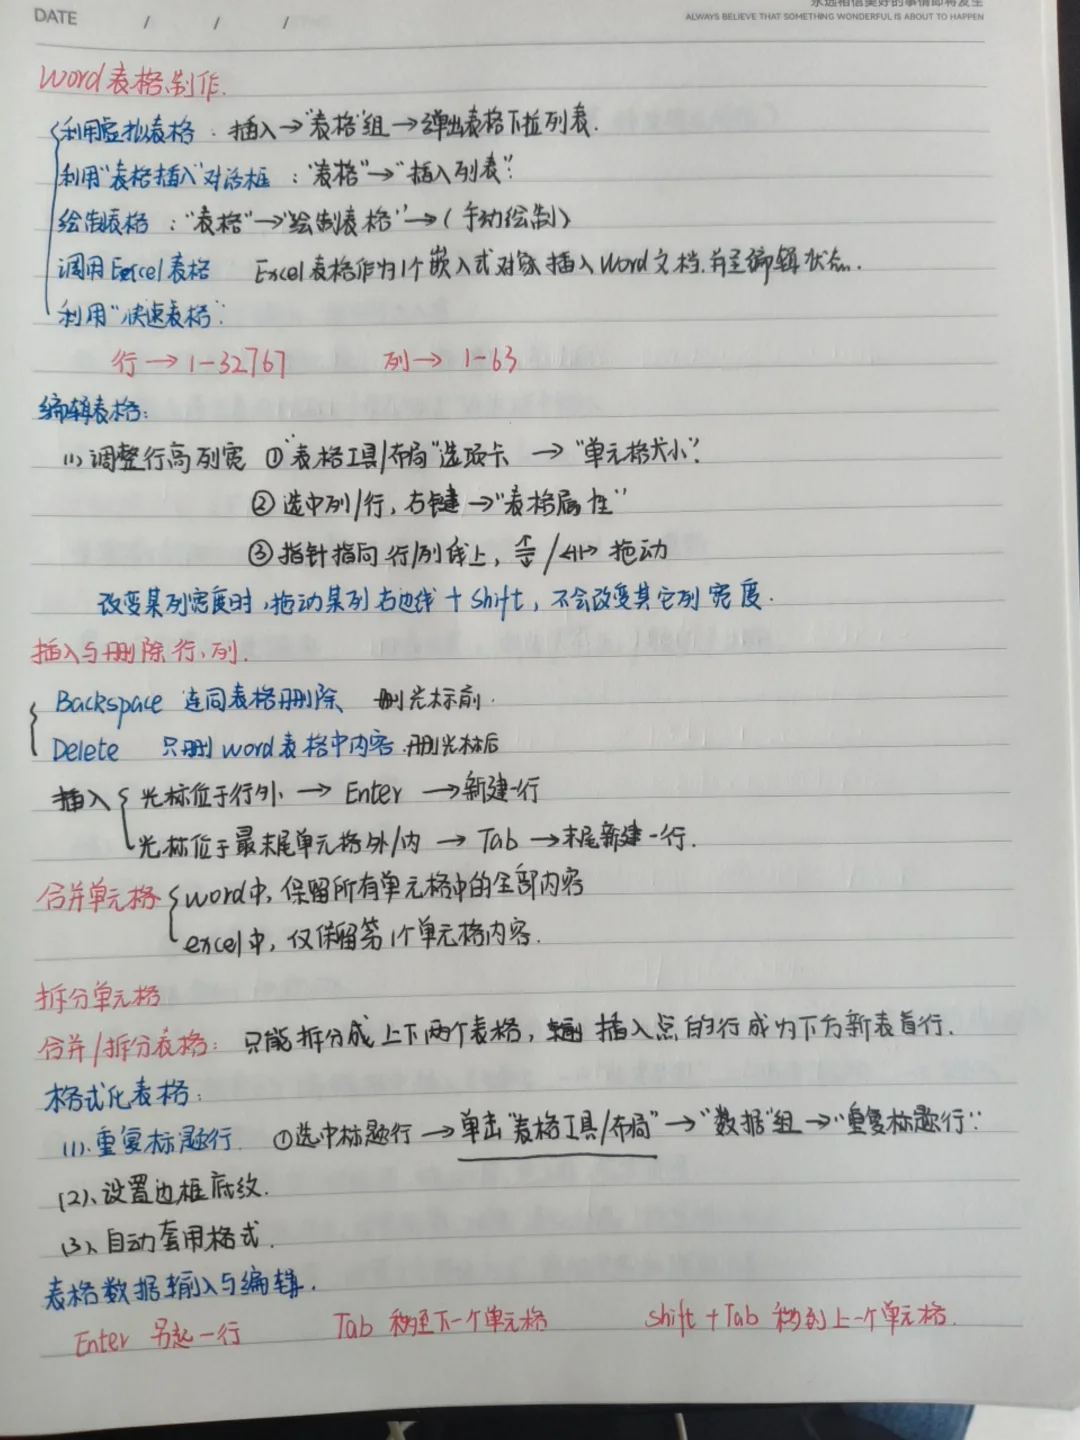 DATE / / /
永远相信美好的事情即将发生
ALWAYS BELIEVE THAT SOMETHING WONDERFUL IS ABOUT TO HAPPEN
Word表格制作.
利用虚拟表格：插入→"表格"组→弹出表格下拉列表.
利用"表格插入"对话框："表格"→"插入列表".
绘制表格："表格"→"绘制表格"→(手动绘制)
调用Excel表格 Excel表格作为1个嵌入式对象插入Word文档.并呈编辑状态.
利用"快速表格".
行→1-32767 列→1-63
编辑表格：
(1)调整行高列宽 ①"表格工具/布局"选项卡 →"单元格大小".
②选中列/行，右键→"表格属性"
③指针指向行/列线上， / 拖动
改变某列宽度时，拖动某列右边线+Shift，不会改变其它列宽度.
插入与删除行、列.
Backspace 连同表格删除、删光标前.
Delete 只删word表格中内容.删光标后
插入 光标位于行外→Enter→新建一行
光标位于最末尾单元格外/内→Tab→末尾新建一行.
合并单元格 word中，保留所有单元格中的全部内容
excel中，仅保留第1个单元格内容.
拆分单元格
合并/拆分表格：只能拆分成上下两个表格， 插入点的行成为下方新表首行.
格式化表格：
(1).重复标题行. ①选中标题行→单击"表格工具/布局"→"数据"组→"重复标题行".
(2)、设置边框底纹.
(3)、自动套用格式.
表格数据输入与编辑.
Enter 另起一行 Tab 移至下一个单元格 shift+Tab 移到上一个单元格.